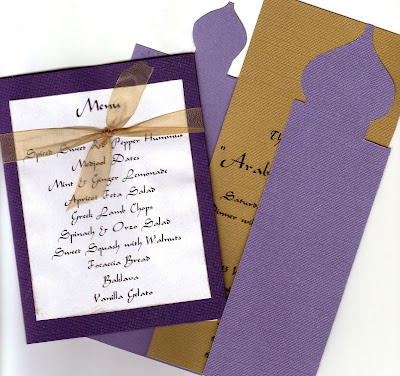 Menu
Spiced Sweet Red Pepper Hummus
Medjool Dates
Mint & Ginger Lemonade
Apricot Feta Salad
Greek Lamb Chops
Spinach & Orzo Salad
Sweet Squash with Walnuts
Focaccia Bread
Baklava
Vanilla Gelato
"Arab
Saturd
Dinner wi